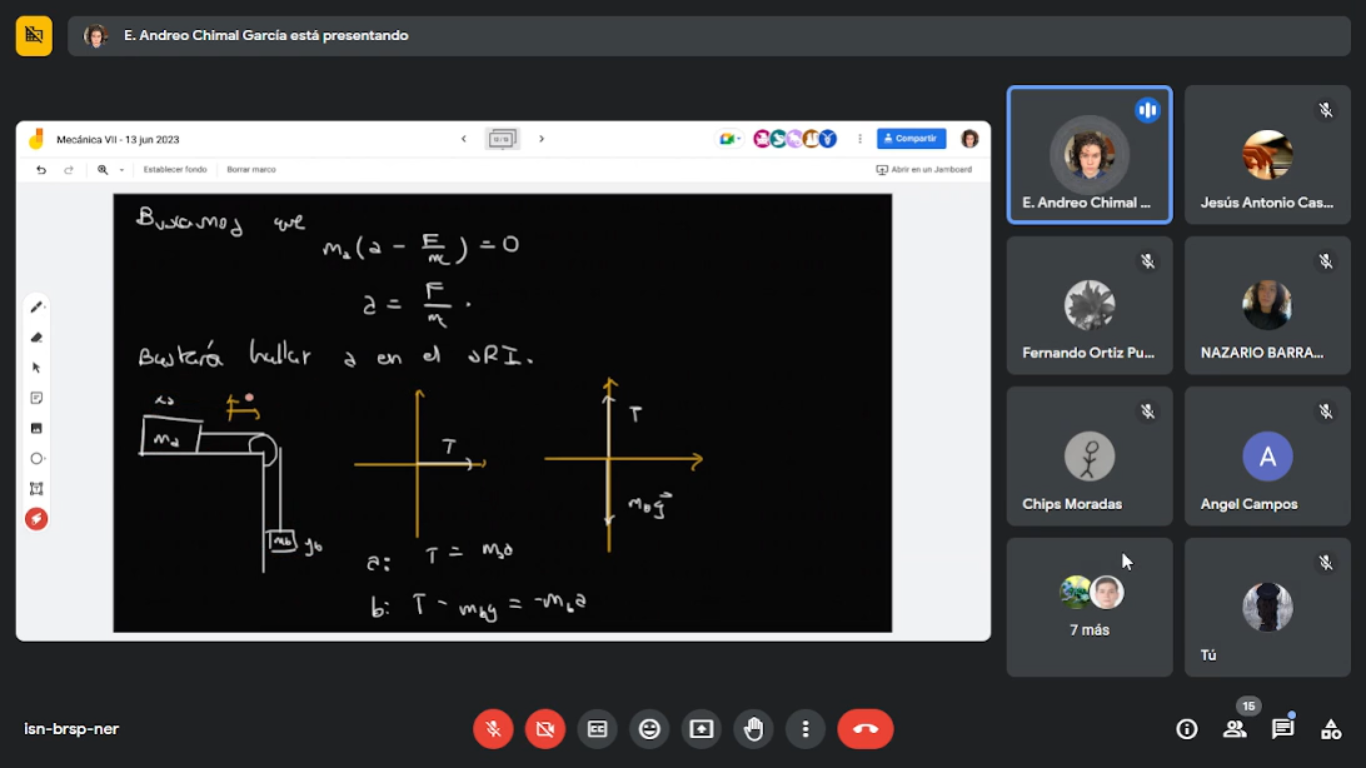 E. Andreo Chimal García está presentando
Mecánica VII - 13 jun 2023
Compartir
Establecer fondo
Borrar marco
Abrir en un Jamboard
Buscamos que
m₂(a - F/m) = 0
a = F/m.
Bastará hallar a en el SRI.
T
T
m_b g⃗
m_b
y_b
a: T = m_a a
b: T - m_b g = -m_b a
E. Andreo Chimal ...
Jesús Antonio Cas...
Fernando Ortiz Pu...
NAZARIO BARRA...
Chips Moradas
A
Angel Campos
7 más
Tú
isn-brsp-ner
15